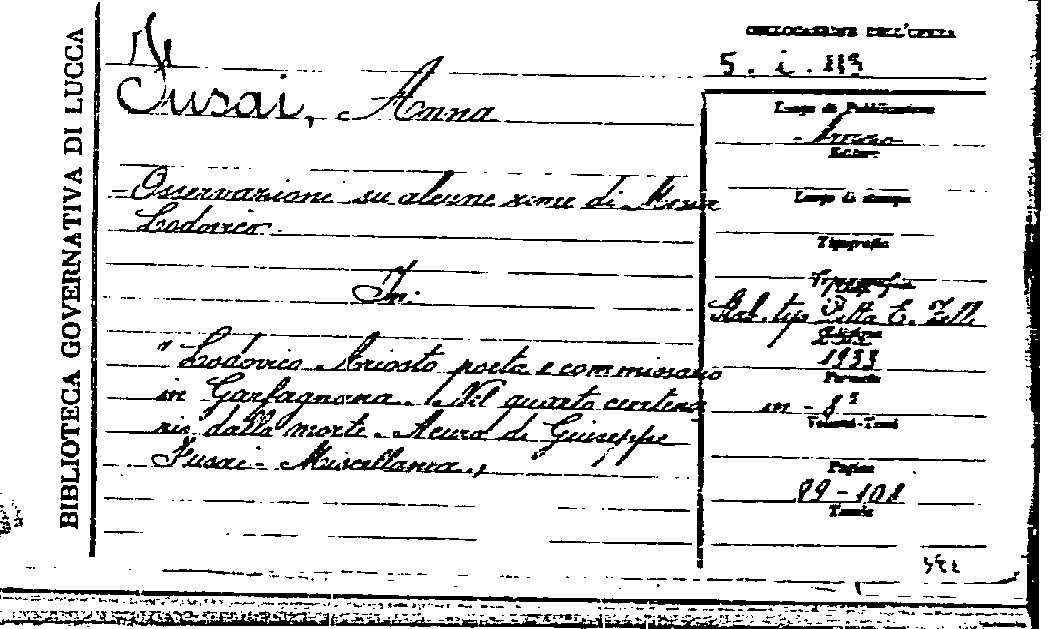 BIBLIOTECA GOVERNATIVA DI LUCCA
Fusai, Anna
Osservazioni su alcune rime di Messer
Lodovico.
In:
"Lodovico Ariosto poeta e commissario
in Garfagnana. Nel quarto centena
rio dalla morte. A cura di Giuseppe
Fusai - Miscellanea"
COLLOCAZIONE DELL'OPERA
5. i. 113
Luogo di Pubblicazione
Arezzo
Editore
Luogo di stampa
Tipografia
Stab. tip. Ditta E. Zelli
Edizione
1933
Formato
in - 8°
Volumi-Tomi
Pagine
89-101
Tavole